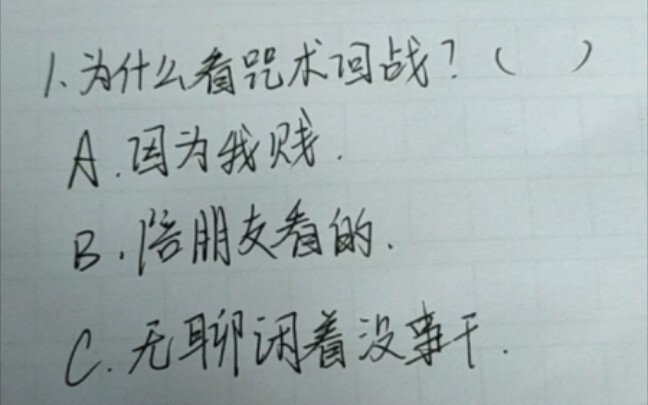 1.为什么看咒术回战?( )
A.因为我贱.
B.陪朋友看的.
C.无聊闲着没事干.